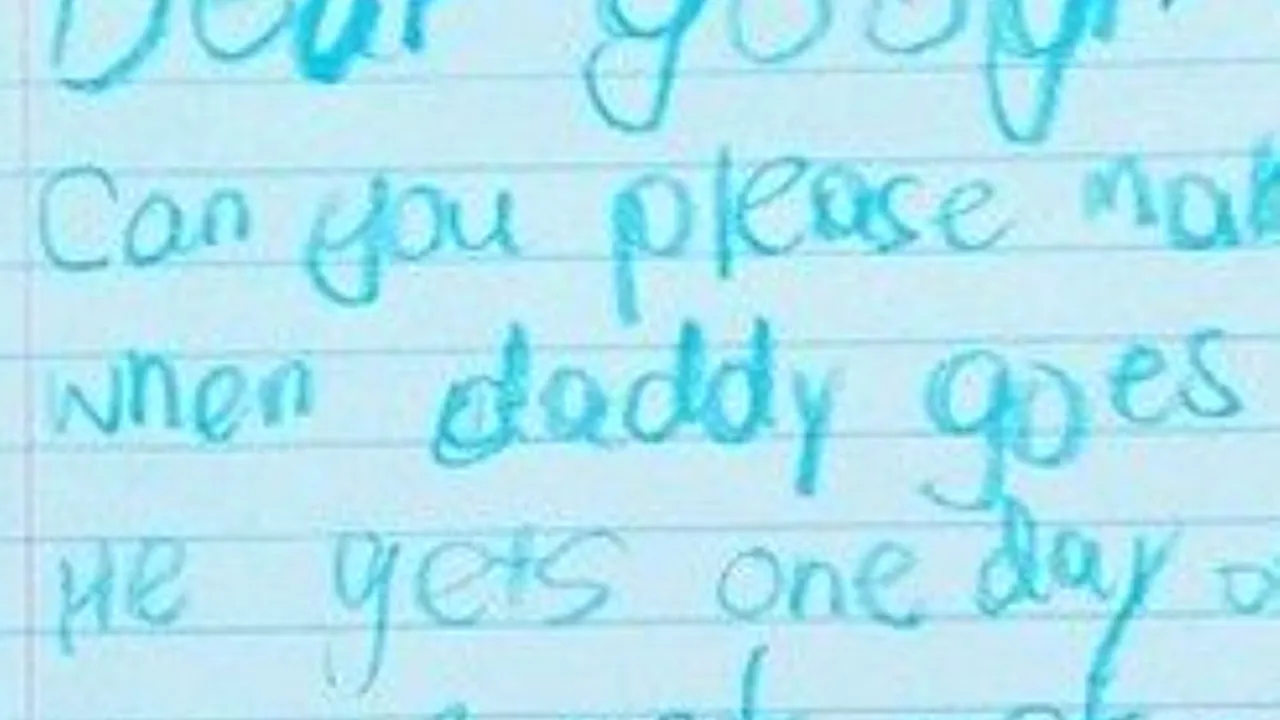 Dear googl
Can you please mak
when daddy goes
He gets one day o